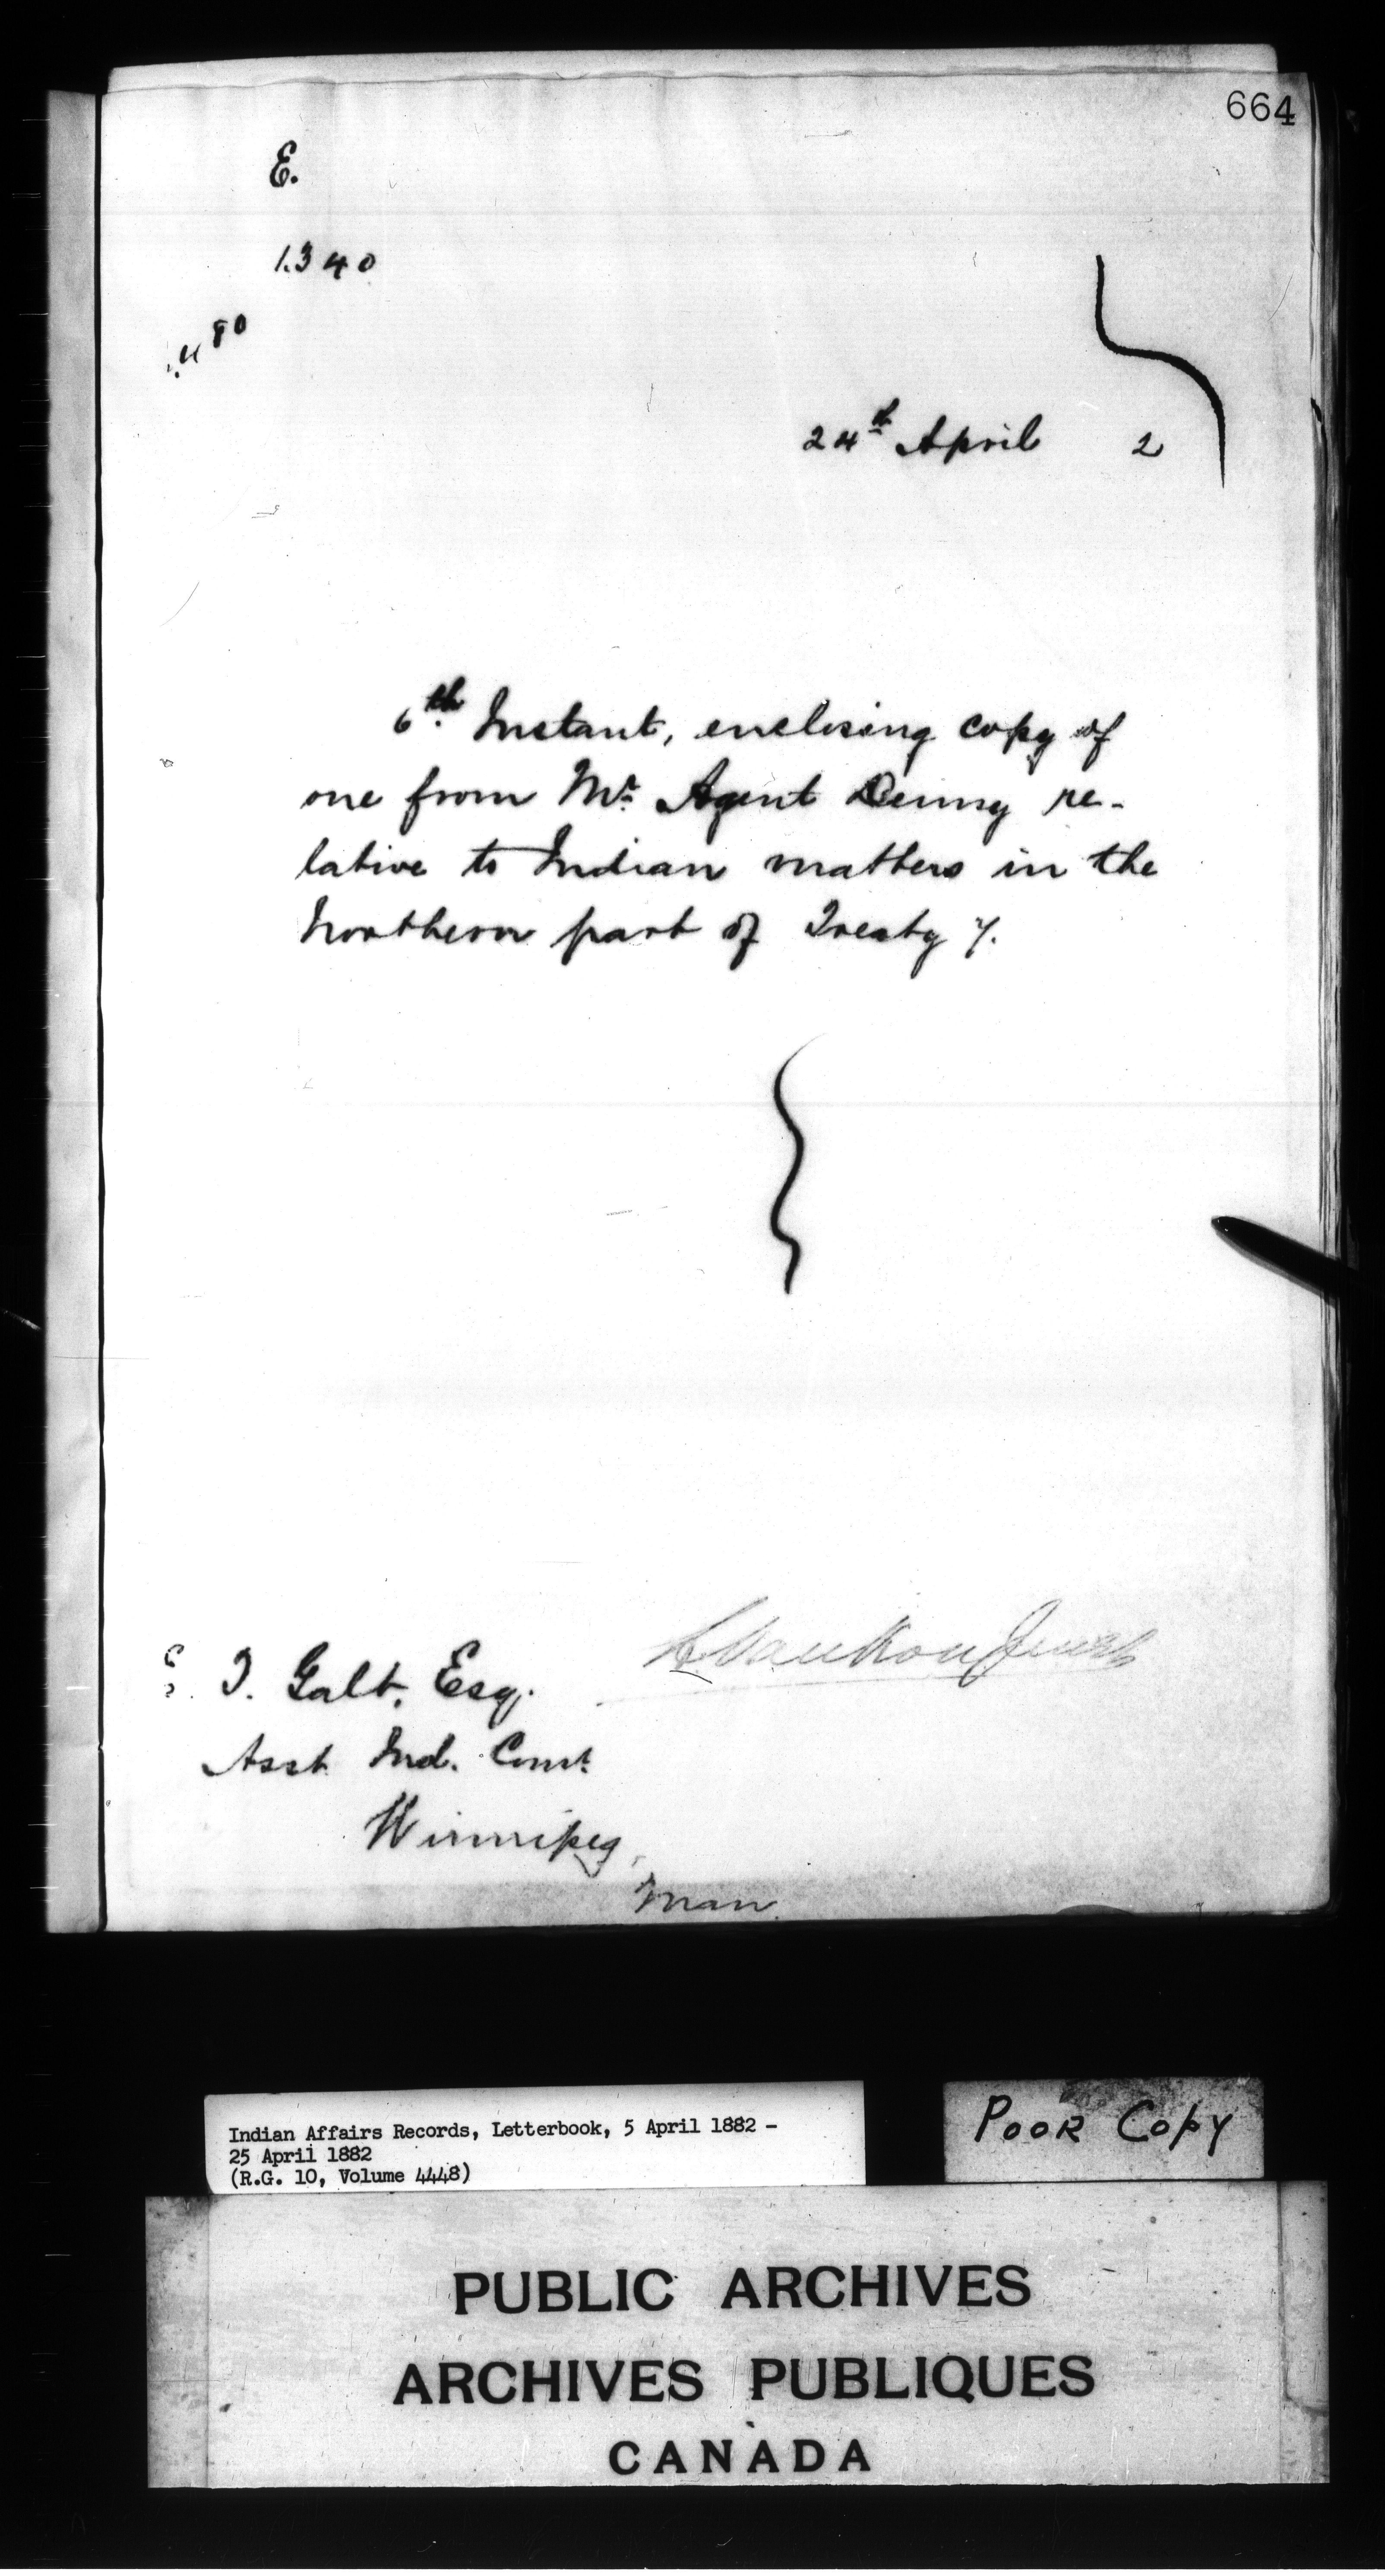 664
E.
1340
24th April 2
6th Instant, enclosing copy of
one from Mr. Agent Denny re-
lative to Indian matters in the
Northern part of Treaty 7.
L. VanKoughnet
E. T. Galt, Esq.
Asst. Ind. Comr.
Winnipeg,
Man.
Indian Affairs Records, Letterbook, 5 April 1882 -
25 April 1882
(R.G. 10, Volume 4448)
POOR COPY
PUBLIC ARCHIVES
ARCHIVES PUBLIQUES
CANADA